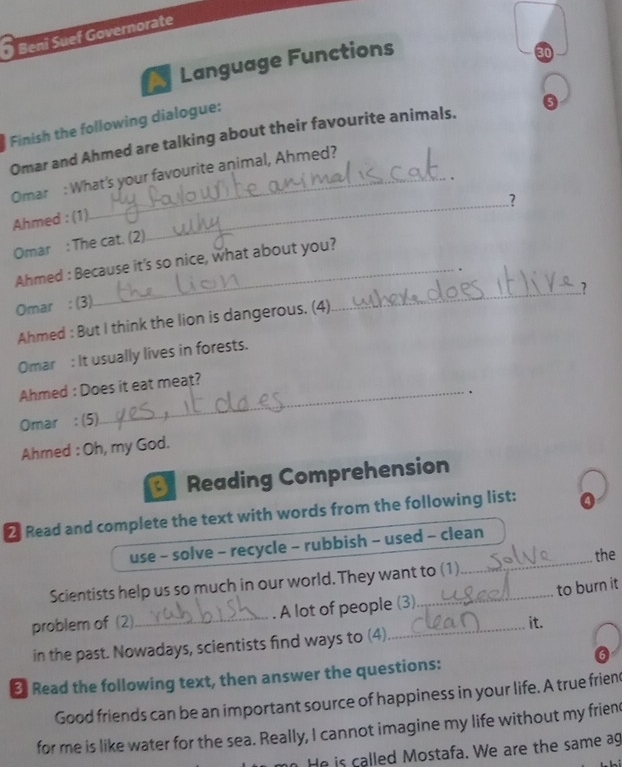 6 Beni Suef Governorate
30
A Language Functions
5
Finish the following dialogue:
Omar and Ahmed are talking about their favourite animals.
Omar : What's your favourite animal, Ahmed?
Ahmed : (1) My favourite animal is cat.
Omar : The cat. (2) why ?
Ahmed : Because it's so nice, what about you?
Omar : (3) the lion .
Ahmed : But I think the lion is dangerous. (4) where does it live ?
Omar : It usually lives in forests.
Ahmed : Does it eat meat?
Omar : (5) yes, it does .
Ahmed : Oh, my God.
B Reading Comprehension
4
2 Read and complete the text with words from the following list:
use – solve – recycle – rubbish – used – clean
Scientists help us so much in our world. They want to (1) solve the
problem of (2) rubbish . A lot of people (3) used to burn it
in the past. Nowadays, scientists find ways to (4) clean it.
6
3 Read the following text, then answer the questions:
Good friends can be an important source of happiness in your life. A true frien
for me is like water for the sea. Really, I cannot imagine my life without my frien
He is called Mostafa. We are the same ag